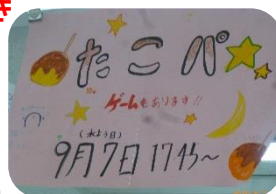 たこパ
ゲームもあります!!
(水よう日)
9月7日 1745~